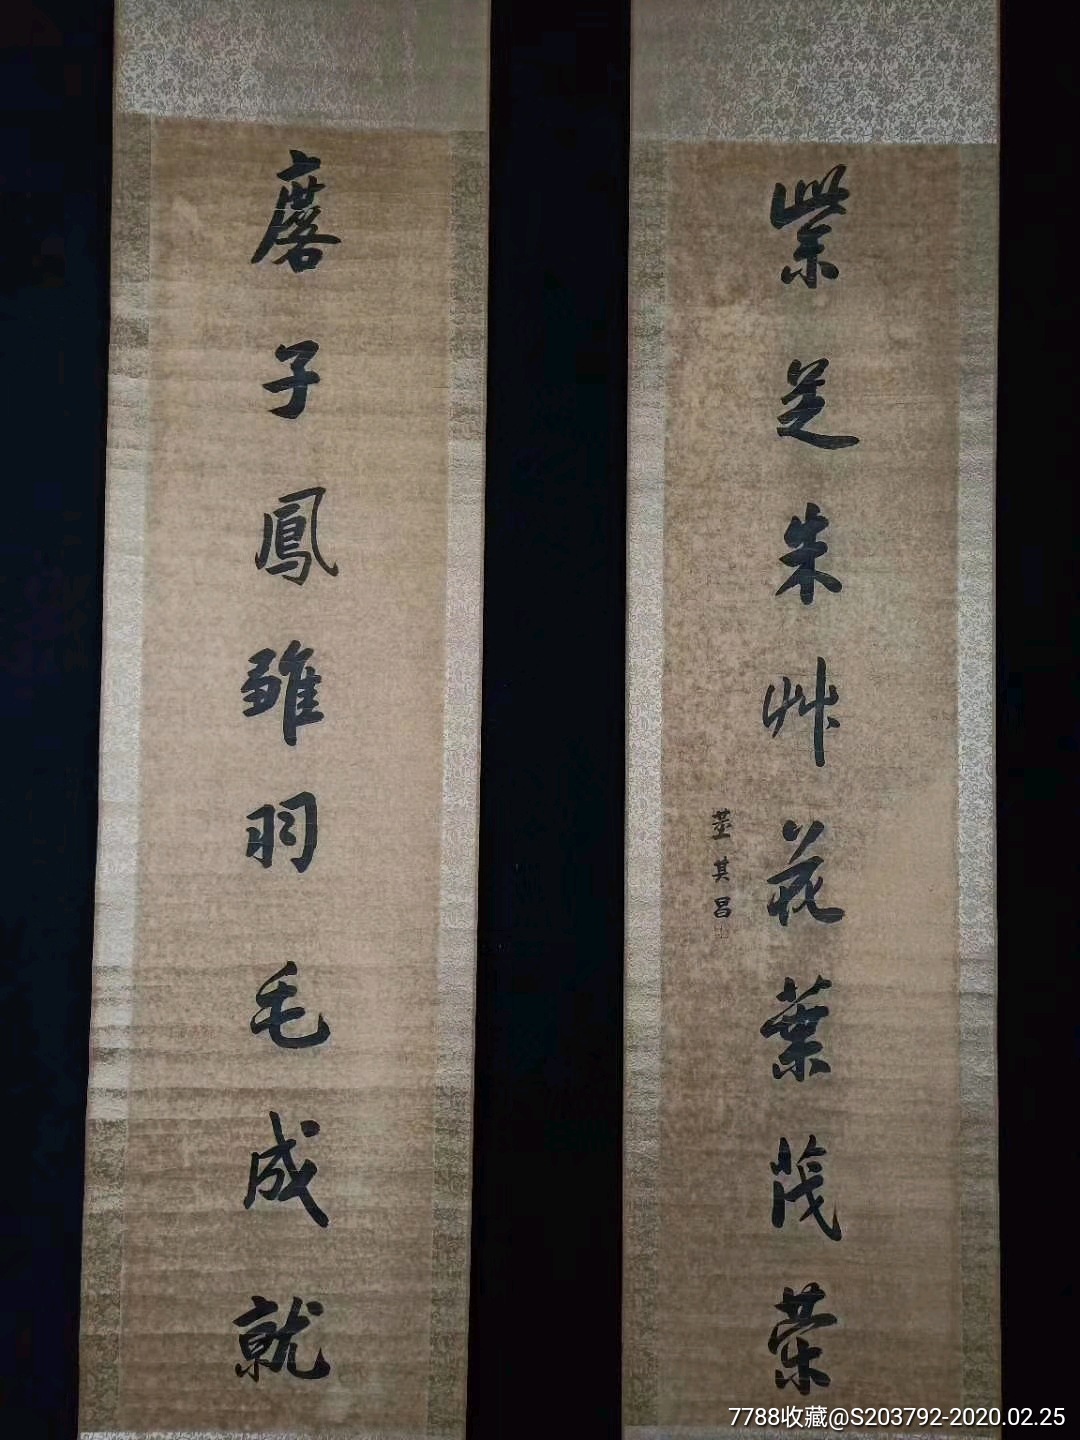 紫芝朱艸花葉茂榮
董其昌
麐子鳳雛羽毛成就
7788收藏@S203792-2020.02.25